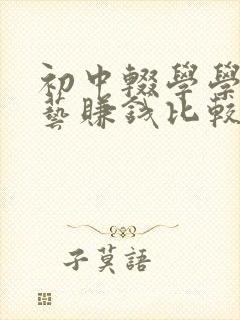 初中輟學學
藝賺錢比較
子莫語